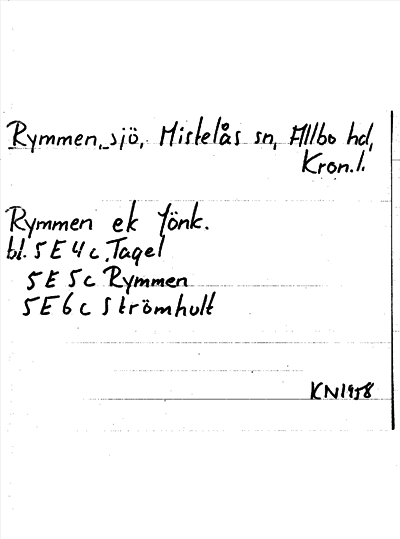 Rymmen, sjö, Mistelås sn, Allbo hd,
Kron.l.
Rymmen ek Jönk.
bl. 5E4c Tagel
5E5c Rymmen
5E6c Strömhult
KN1958